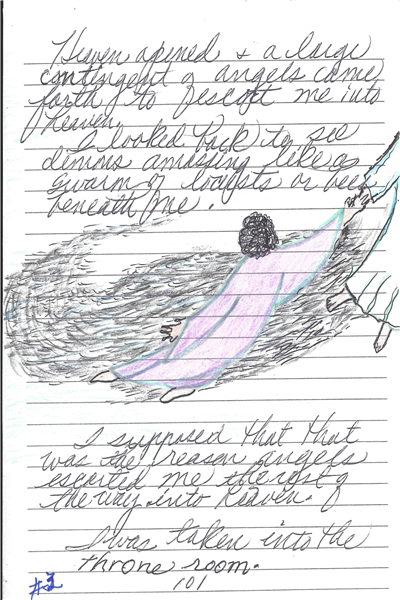 Heaven opened & a large
contingent of angels came
forth to escort me into
heaven.
I looked back to see
demons amassing like a
swarm of locusts or bees
beneath me.
I supposed that that
was the reason angels
escorted me the rest of
the way into heaven.
I was taken into the
throne room.
101